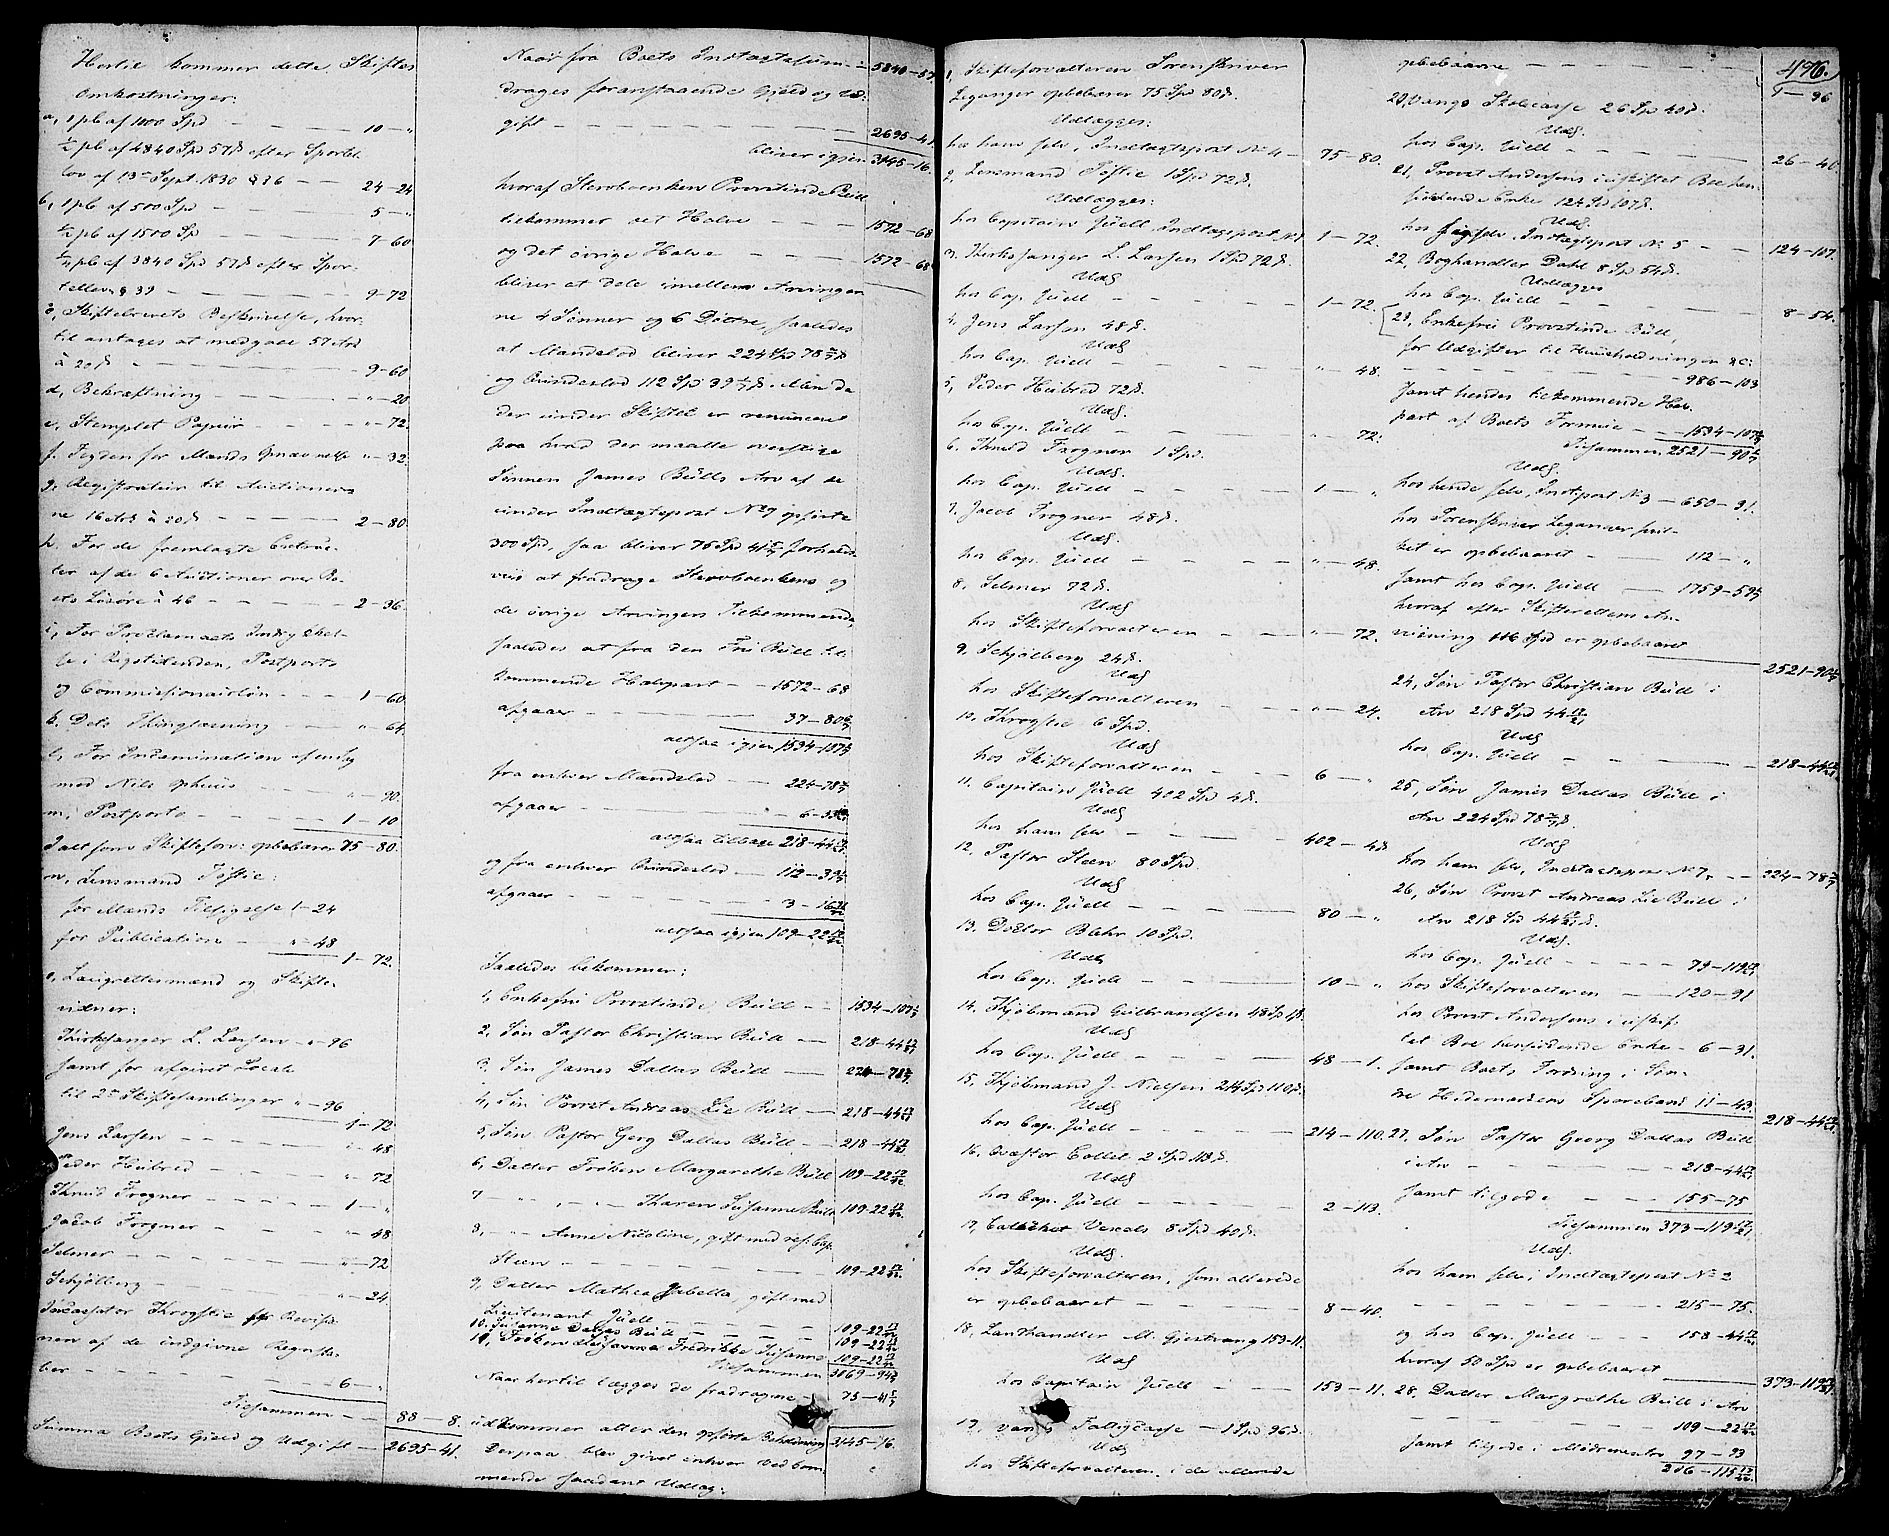 Hertil kommer dette Skiftes
Omkostninger:
a, 1 pC af 1000 Spd — 10 — "
½ pC af 4840 Spd 57 ß efter Sportel
lov af 13de Sept. 1830 § 36 — 24 — 24
b, 1 pC af 500 Spd — 5 — "
½ pC af 1500 Sp — 7 — 60
¼ pC af 3840 Spd 57 ß efter Spor-
telloven § 39 — 9 — 72
c, Skiftebrevets Beskrivelse, hvor-
til antages at medgaae 57 Ark
à 20 ß — 9 — 60
d, Bekræftning — " — 20
e, Stemplet Papiir — " — 72.
f. Fogden for Mænds Opnævnelse " — 32.
g. Registratur til Auctioner-
ne 16 Ark à 20 ß — 2 — 80
h. For de fremlagte Extrac-
ter af de 6 Auctioner over Bo-
ets Løsøre à 46 — 2 — 36.
i, For Proclamaets Indrykkel-
se i Rigstidenden, Postporto
og Commissionairløn — 1 — 60
k. Dets Thinglæsning — " — 64
l, For Examination
med Nils Ophuus — " — 90
m, Postporto — 1 — 10
Ialt som Skifteforv: opbebærer 75 — 80.
n, Lensmand Tostie:
for Mænds Tilsigelse 1 — 24
for Publication — " — 48
1 — 72.
o, Laugrettesmænd og Skifte-
vidner:
Kirkesanger L. Larsen — " — 96
samt for afgivet Locale
til 2de Skiftesamlinger " — 96
1 — 72
Jens Larsen — " — 48
Peder Heibred — " — 72
Knud Frogner — 1 — "
Jacob Frogner — " — 48
Selmer — " — 72
Schjølberg — " — 24
Krogstie for Revisio-
nen af de indgivne Regnska-
ber — 6 — "
Tilsammen — 88 — 8.
Summa Boets Gjeld og Udgift — 2695 — 41.
Naar fra Boets Indtægtssum — 5840 — 57
drages foranstaaende Gjeld og Ud-
gift — 2695 — 41
bliver igjen 3145 — 16.
hvoraf Stervboenken Provstinde Büll
tilkommer det Halve — 1572 — 68
og det øvrige Halve — 1572 — 68
bliver at dele imellem Arvinger
ne 4 Sønner og 6 Døttre, saaledes
at Mandslod bliver 224 Spd 78 2/7 ß
og Qvindeslod 112 Spd 39 1/7 ß. Men da
der under Skiftet er renunceret
paa hvad der maatte overstige
Sønnen James Bülls Arv af de
under Indtægtspost No 7 opførte
300 Spd, saa bliver 75 Spd 41 5/7 ß forholds
viis at fradrage Stervboenkens og
de øvrige Arvingers Tilkommende,
saaledes at fra den Fru Büll til-
kommende Halvpart — 1572 — 68
afgaaer — 37 — 80 6/7
altsaa igjen 1534 — 107 1/7
fra enhver Mandslod — 224 — 78 2/7
afgaaer — 6 — 33
altsaa tilbage 218 — 44 17/21
og fra enhver Qvindeslod — 112 — 39 1/7
afgaaer — 3 — 16
altsaa igjen 109 — 22 17/42
Saaledes bekommer:
1, Enkefru Provstinde Büll — 1534 — 107 1/7
2. Søn Pastor Christian Büll — 218 — 44 17/21
3. Søn James Dallas Büll — 224 — 78 2/7
4, Søn Provst Andreas Lie Büll — 218 — 44 17/21
5, Søn Pastor Georg Dallas Büll — 218 — 44 17/21
6, Datter Frøken Margarethe Büll 109 — 22 17/42
7 — " — " — Karen Susanne Büll 109 — 22 17/42
8, — " — Anne Nicoline, gift med res: Cap.
Steen — 109 — 22 17/42
9, Datter Mathea Isabella, gift med
Lieutenant Juell — 109 — 22 17/42
10. Susanne Dallas Büll — 109 — 22 17/42
11, Frøken Fredrikke Susanne 109 — 22 17/42
Tilsammen 3069 — 94 2/7
Naar hertil lægges de fradragne — 75 — 41 5/7
udkommer atter den opførte Beholdning 3145 — 16.
Derpaa blev givet enhver Vedkom-
mende saadant Udlæg:
496.
1, Skifteforvalteren Sorenskriver
Leganger opbebærer 75 Spd 80 ß.
Udlægges:
hos ham selv, Indtægtspost No 4 — 75 — 80.
2, Lensmand Tostie 1 Spd 72 ß.
Udlægges:
hos Capitain Juell Indtægtspost No 1 — 1 — 72.
3, Kirksanger L. Larsen 1 Spd 72 ß.
Udl
hos Cap. Juell — 1 — 72.
4, Jens Larsen 48 ß.
Udl
hos Cap. Juell — " — 48.
5, Peder Heibred 72 ß.
Udl.
hos Cap. Juell — " — 72.
6. Knud Frogner 1 Spd.
Udl.
hos Cap. Juell — 1 — "
7. Jacob Frogner 48 ß.
Udl.
hos Cap. Juell — " — 48.
8, Selmer 72 ß.
Udl
hos Skifteforvalteren — " — 72.
9, Schjølberg 24 ß.
Udl
hos Skifteforvalteren — " — 24.
10. Krogstie 6 Spd.
Udl
hos Skifteforvalteren — 6 — "
11. Capitain Juell 402 Spd 4 ß.
Udl
hos ham selv — 402 — 4 ß
12, Pastor Steen 80 Spd.
Udl
hos Cap. Juell — 80 — "
13. Doctor Blehr 10 Spd.
Udl
hos Cap. Juell — 10 — "
14. Kjøbmand Gulbrandsen 48 Sp 1 ß.
Udl
hos Cap. Juell — 48 — 1.
15, Kjøbmand J. Nielsen 214 Spd 110 ß.
Udl
hos Cap. Juell — 214 — 110.
16, Qvæstor Collet 2 Spd 113 ß.
Udl
hos Cap. Juell — 2 — 113.
17, 8 Spd 40 ß.
Udl.
hos Skifteforvalteren, som allerede
er opbebaaret — 8 — 40.
18, Landhandler M. Gjestvang 153 — 11.
Udl
hos Capitain Juell — 153 — 11.
19, Vangs Fattigcasse — 1 Spd 96 ß.
Udl
hos Skifteforvalteren, i de allerede
opbebaarne — 1 — 96
20, Vangs Skolecasse 26 Spd 40 ß.
Udl.
hos Cap. Juell — 26 — 40.
21, Provst Andersens i uskiftet Boe hen-
siddende Enke 124 Spd 107 ß.
Udl.
hos sig selv, Indtægtspost No 5 — 124 — 107.
22, Boghandler Dahl 8 Spd 54 ß.
Udlægges
hos Cap. Juell — 8 — 54.
23, Enkefru Provstinde Büll,
for Udgifter til Huusholdningen &c:
— 986 — 103
samt hendes tilkommende Hav-
part af Boets Formue — 1534 — 107 1/7
Tilsammen 2521 — 90 1/7
Udl.
hos hende selv, Indt.post No 3 — 650 — 31.
hos Sorenskriver Leganger, hvil-
ket er opbebaaret — 112 — "
samt hos Cap. Juell — 1759 — 59 1/7
hvoraf efter Skifterettens An-
viisning 116 Spd er opbebaaret
2521 — 90 1/7
24, Søn Pastor Christian Büll i
Arv 218 Spd 44 17/21
Udl
hos Cap. Juell — 218 — 44 17/21
25, Søn James Dallas Büll i
Arv 224 Spd 78 2/7 ß.
Udl
hos ham selv, Indtægtspost No 7, — 224 — 78 2/7
26, Søn Provst Andreas Lie Büll i
Arv 218 Spd 44 17/21 ß.
Udl.
hos Cap. Juell — 79 — 119 17/21
hos Skifteforvalteren — 120 — 91
hos Provst Andersens i uskif-
tet Boe hensiddende Enke — 6 — 31.
samt Boets Fordring i Søn-
dre Hedemarkens Sparebank 11 — 43.
218 — 44 17/21
27. Søn Pastor Georg Dallas Büll
i Arv — 218 — 44 17/21
samt tilgode — 155 — 75
Tilsammen 373 — 119 17/21
Udl.
hos ham selv, Indtægtspost No 2
— 215 — 75.
og hos Cap. Juell — 158 — 44 17/21
hvoraf 50 Spd er opbebaaret
373 — 119 17/21
28. Datter Margrethe Büll i Arv
— 109 — 22 17/42
samt tilgode i Mødrenearv 97 — 93
206 — 115 17/42